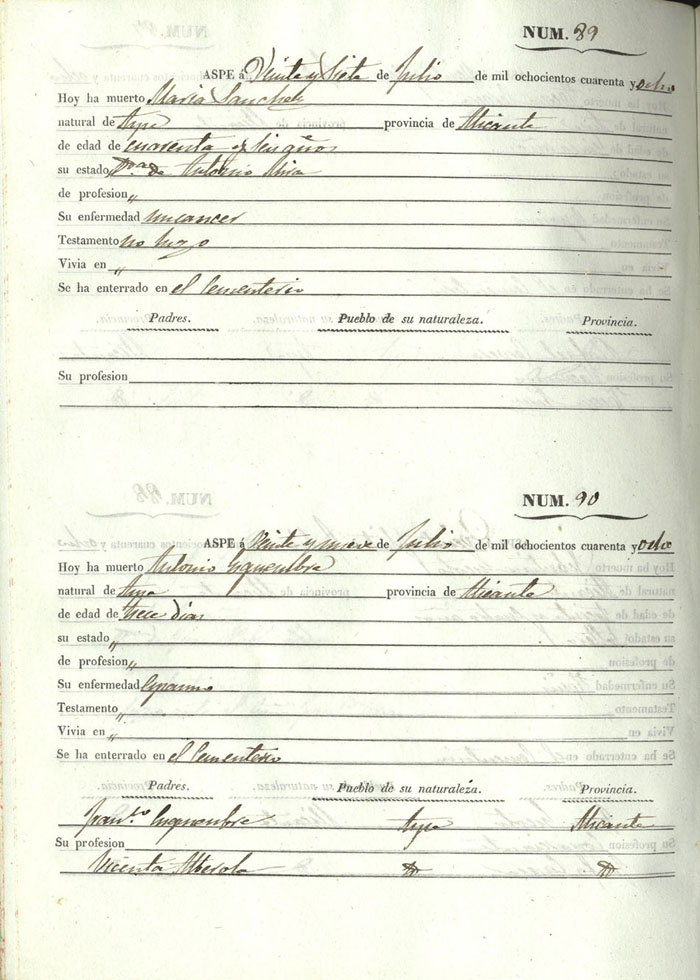 NUM. 89
ASPE á Veinte y siete de Julio de mil ochocientos cuarenta y ocho
Hoy ha muerto Maria Sanchez
natural de Aspe provincia de Alicante
de edad de cuarenta y seis años
su estado de Antonio Mira
de profesion "
Su enfermedad un cancer
Testamento no hizo
Vivia en "
Se ha enterrado en el Cementerio
Padres. Pueblo de su naturaleza. Provincia.
Su profesion
NUM. 90
ASPE á Veinte y nueve de Julio de mil ochocientos cuarenta y ocho
Hoy ha muerto Antonio
natural de Aspe provincia de Alicante
de edad de trece dias
su estado "
de profesion "
Su enfermedad
Testamento "
Vivia en "
Se ha enterrado en el Cementerio
Padres. Pueblo de su naturaleza. Provincia.
Franco Aspe Alicante
Su profesion
Vicenta Alberola